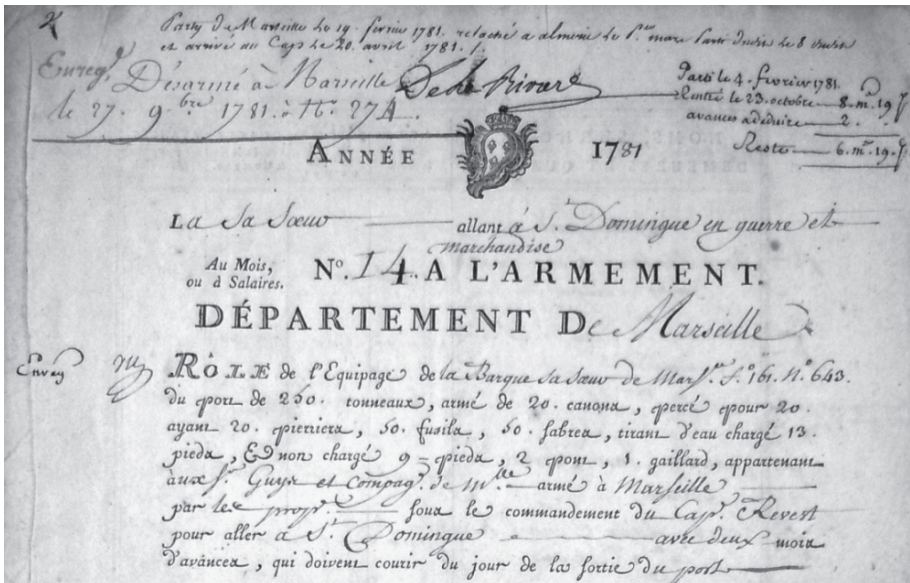 Party de Marseille le 19. fevrier 1781. relaché a almerie le 1er mars Parti dudit le 8 dudit
et arrivé au Cap le 20. avril 1781.
Enregé Désarmé à Marseille
le 27. 9bre 1781. à No. 274
Parti le 4. fevrier 1781.
Rentré le 23. octobre 8. m. 19. j
avances a déduire 2.
Reste 6. m. 19. j
ANNÉE 1781
La Sa Sœur allant à St. Domingue en guerre et
marchandise
Au Mois,
ou à Salaires.
No. 14. A L'ARMEMENT.
DÉPARTEMENT De Marseille
Envoy
RÔLE de l'Equipage de la Barque sa sœur de Marslle. fo. 161. No. 643.
du port de 250. tonneaux, armé de 20. canons, percé pour 20.
ayant 20. pierriers, 50. fusils, 50. sabres, tirant d'eau chargé 13.
pieds, & non chargé 9 pieds, 2 pont, 1. gaillard, appartenant
aux Srs. Guys et Compage. de Mlle. armé à Marseille
par les propres. sous le commandement du Cape. Revest
pour aller à St. Domingue avec deux mois
d'avances, qui doivent courir du jour de la sortie du port